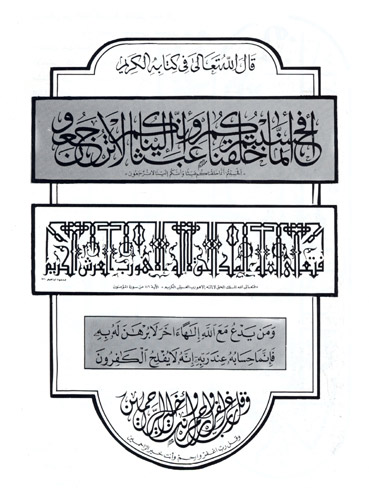 قال الله تعالى في كتابه الكريم
أفحسبتم أنما خلقناكم عبثا وأنكم إلينا لا ترجعون
أفحسبتم أنما خلقناكم عبثا وأنكم إلينا لا ترجعون
فتعالى الله الملك الحق لا إله إلا هو رب العرش الكريم
فتعالى الله الملك الحق لا إله إلا هو رب العرش الكريم - الآية ١١٦ من سورة المؤمنون
وَمَن يَدْعُ مَعَ اللَّهِ إِلَٰهًا ءَاخَرَ لَا بُرْهَٰنَ لَهُ بِهِ
فَإِنَّمَا حِسَابُهُ عِندَ رَبِّهِ إِنَّهُ لَا يُفْلِحُ الْكَٰفِرُونَ
وقل رب اغفر وارحم وأنت خير الراحمين
وقل رب اغفر وارحم وأنت خير الراحمين